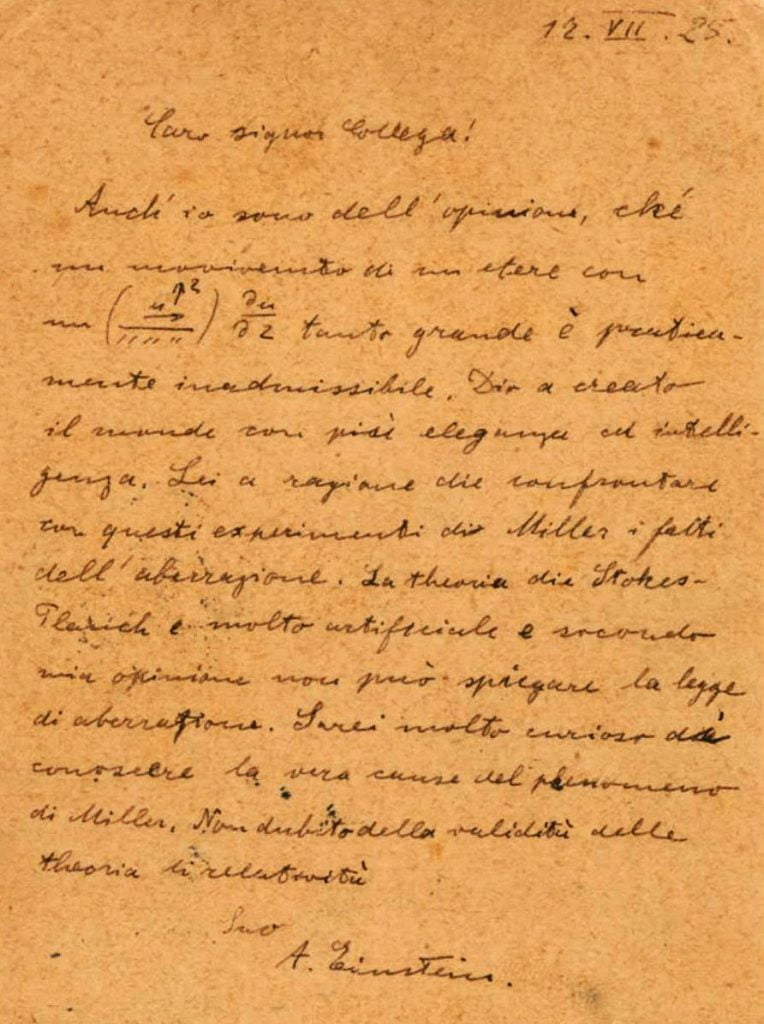 12. VII. 25.
Caro signor Collega!
Anch' io sono dell'opinione, ché
un movivemto di un etere con
un ( ) ∂u/∂z tanto grande è pratica-
mente inadmissibile. Dio a creato
il monde con più eleganza ed intelli-
genza. Lei a ragione die confrontare
con questi experimenti di Miller i fatti
dell'aberrazione. La theoria die Stokes-
e molto artificiale e secondo
mia opinione non può spiegare la legge
di aberratione. Sarei molto curioso di
conoscere la vera cause del phenomeno
di Miller. Non dubito della validitù delle
theoria di relativitù
Suo
A. Einstein.